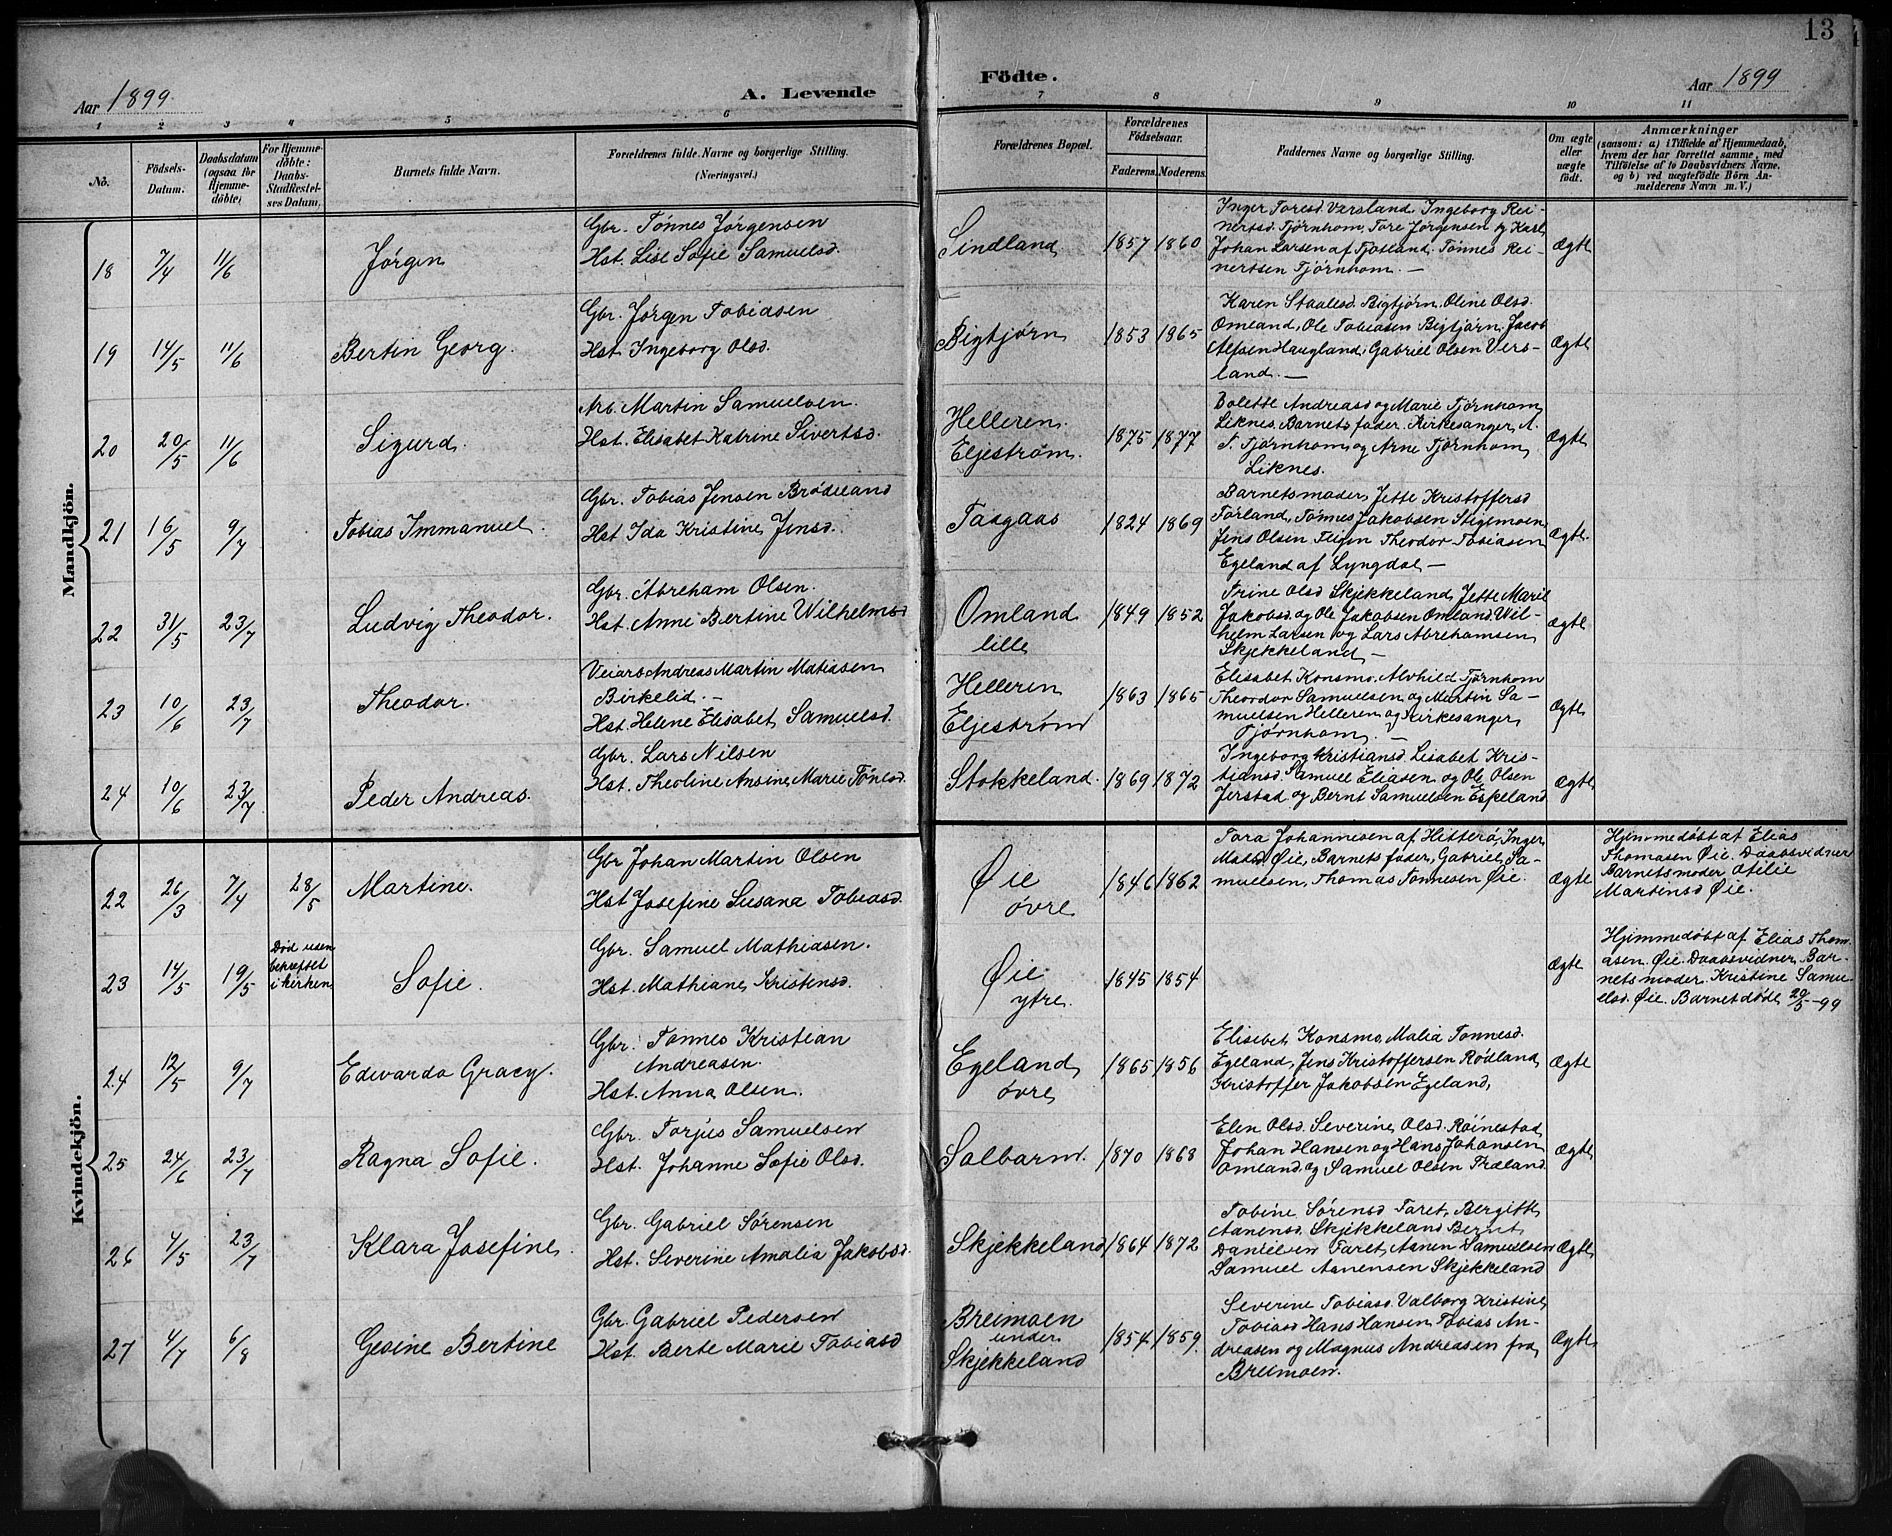 13
Aar 1899.
A. Levende
Födte.
Aar 1899
1 2 3 4 5 6 7 8 9 10 11
No.
Födsels-
Datum.
Daabsdatum
(ogsaa for
Hjemme-
döbte)
For Hjemme-
döbte:
Daabs-
Stadfæstel-
ses Datum,
Barnets fulde Navn.
Forældrenes fulde Navne og borgerlige Stilling.
(Næringsvei.)
Forældrenes Bopæl.
Forældrenes
Födselsaar.
Faderens. Moderens.
Faddernes Navne og borgerlige Stilling.
Om ægte
eller
uægte
födt.
Anmærkninger
(saasom: a) i Tilfælde af Hjemmedaab,
hvem der har forrettet samme, med
Tilföielse af to Daabsvidners Navne,
og b) ved uægtefödte Börn An-
melderens Navn m. V.)
Mandkjön.
18 7/4 11/6 Jørgen
Gbr. Tønnes Jørgensen
Hst. Lise Sofie Samuelsd.
Sindland 1857 1860
Inger Toresd. Versland, Ingeborg Rei-
nertsd. Tjørnhom, Tore Jørgensen og Karl
Johan Larsen af Fjotland. Tønnes Rei-
nertsen Tjørnhom. —
Ægte
19 14/5 11/6 Bertin Georg.
Gbr. Jørgen Tobiasen
Hst. Ingeborg Olsd.
Bigtjørn 1853 1865
Karen Staalesd. Bigtjørn. Oline Olsd.
Omland, Ole Tobiasen Bigtjørn, Jacob
Alfsen Haugland, Gabriel Olsen Vers-
land. —
Ægte
20 20/5 11/6 Sigurd.
Arb. Martin Samuelsen.
Hst. Elisabet Katrine Sivertsd.
Helleren
Eljestrøm. 1875 1877
Bolette Andreasd og Marie Tjørnhom,
Liknes. Barnets fader. Kirkesanger, A.
T. Tjørnhom og Arne Tjørnhom,
Liknes.
Ægte
21 16/5 9/7 Tobias Immanuel.
Gbr. Tobias Jensen Brødeland
Hst. Ida Kristine Jensd.
Taagaas 1824 1869
Barnets moder, Jette Kristoffersd
Førland, Tønnes Jakobsen Stigemoen,
Jens Olsen Teigen Theodor Tobiasen
Egeland af Lyngdal —
Ægte.
22 31/5 23/7 Ludvig Theodor.
Gbr. Abreham Olsen.
Hst. Anne Bertine Wilhelmsd
Omland
lille 1849 1852
Trine Olsd Skjekkeland, Jette Marie
Jakobsd. og Ole Jakobsen Omland. Wil-
helm Larsen og Lars Abrehamsen
Skjekkeland —
Ægte
23 10/6 23/7 Theodor.
Veiarb Andreas Martin Matiasen
Birkelid. —
Hst. Helene Elisabet Samuelsd.
Helleren
Eljestrøm 1863 1865
Elisabet Konsmo, Alvhild Tjørnhom
Theordor Samuelsen og Martin Sa-
muelsen Helleren og Kirkesanger,
Tjørnhom. —
Ægte
24 10/6 23/7 Peder Andreas.
Gbr. Lars Nilsen
Hst. Theoline Ansine Marie Tönesd.
Stokkeland. 1869 1872
Ingeborg Kristiansd. Lisabet Kris-
tiansd. Samuel Eliasen og Ole Olsen
Jerstad og Bernt Samuelsen Espeland
Ægte
Kvindekjön.
22 26/3 7/4 28/5 Martine.
Gbr Johan Martin Olsen
Hst Josefine Susana Tobiasd.
Øie
øvre 1846 1862
Tora Johannesen af Hitterö, Inger
Madsd. Øie, Barnets fader, Gabriel Sa-
muelsen, Thomas Tønnesen Øie.
Ægte
Hjemmedøbt af Elias
Thomasen Øie. Daabsvidner
Barnets moder Otilie
Martinsd Øie.
23 14/5 19/5 Død uden
bekræftet
i kirken Sofie.
Gbr. Samuel Mathiasen.
Hst. Mathiane Kristensd.
Øie
ytre. 1845 1854
Ægte
Hjemmedøbt af Elias Thom-
asen Øie. Daabsvidner, Bar-
nets moder. Kristine Samu-
elsd. Øie. Barnet døde 20/5-99
24 12/5 9/7 Edvarda Gracy.
Gbr. Tønnes Kristian
Andreasen.
Hst. Anna Olsen.
Egeland
øvre 1865 1856
Elisebet Konsmo, Malia Tønnesd.
Egeland, Jens Kristoffersen Rødland,
Kristoffer Jakobsen Egeland,
Ægte
25 24/6 23/7 Ragna Sofie.
Gbr. Torjus Samuelsen
Hst. Johanne Sofie Olsd.
Solbarm. 1870 1868
Elen Olsd. Severine Olsd. Röinestad,
Johan Hansen og Hans Johansen
Omland og Samuel Olsen Træland.
Ægte
26 4/5 23/7 Klara Josefine.
Gbr. Gabriel Sørensen
Hst. Severine Amalia Jakobsd.
Skjekkeland 1864 1872
Tobine Sørensd Faret, Bergitte
Aanensd. Skjekkeland Bernt
Danielsen Faret, Aanen Samuelsen
Samuel Aanensen Skjekkeland
Ægte
27 4/7 6/8 Gesine Bertine
Gbr. Gabriel Pedersen
Hst. Berte Marie Tobiasd
Breimoen
under
Skjekkeland 1854. 1859.
Severine Tobiasd. Valborg Kristine
Tobiasd Hans Hansen, Tobias An-
dreasen og Magnus Andreasen fra
Breimoen.
Ægte